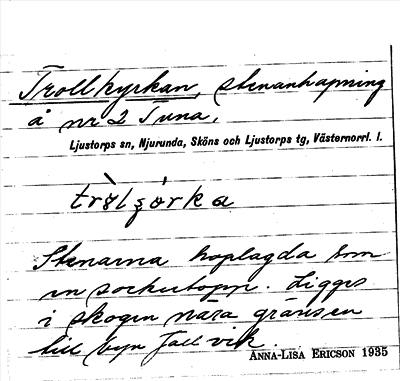 Trollkyrkan, stenanhapning
å nr 2 Tuna.
Ljustorps sn, Njurunda, Sköns och Ljustorps tg, Västernorrl. l.
Stenarna hoplagda som
en sockertopp. Ligger
i skogen nära gränsen
till byn Jällvik.
ANNA-LISA ERICSON 1935